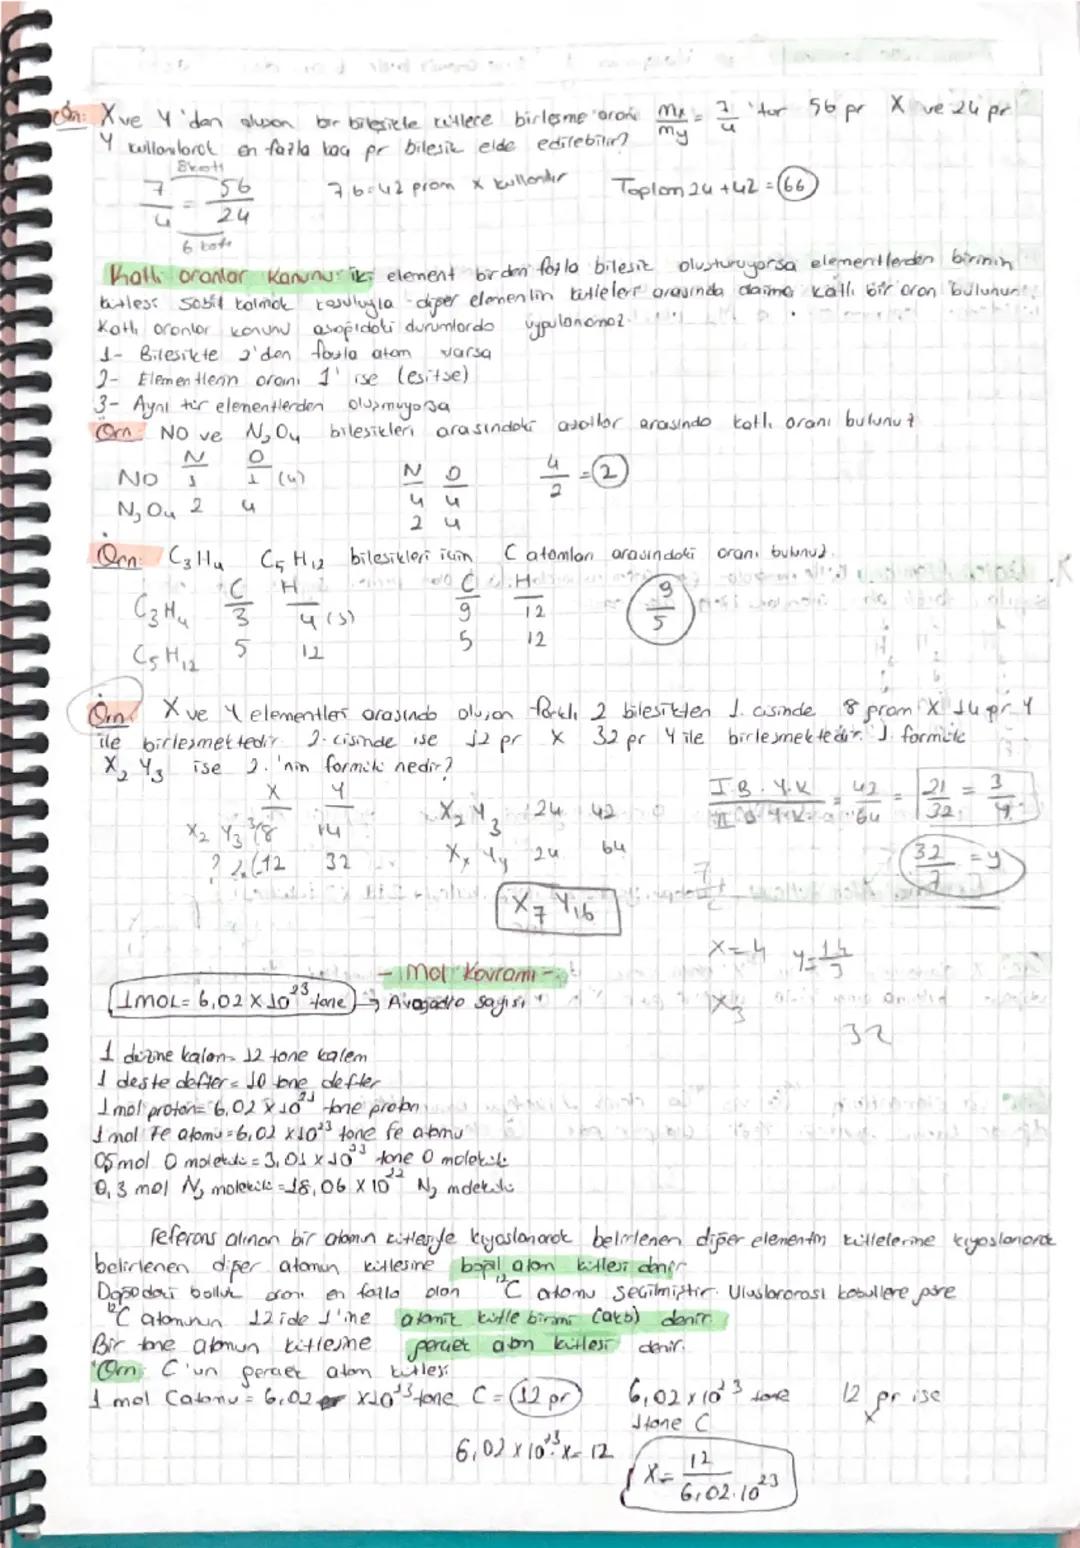 Örn: X ve Y'den oluşan bir bileşikte kütlece birleşme oranı mx/my = 7/4 'tür 56 gr X ve 24 gr
Y kullanılarak en fazla kaç gr bileşik elde edilebilir?
8 katı
7/4 = 56/24 7.6=42 gram X kullanılır Toplam 24+42 = 66
6 katı
Katlı oranlar Kanunu: iki element birden fazla bileşik oluşturuyorsa elementlerden birinin
kütlesi sabit kalmak koşuluyla diğer elementin kütleleri arasında daima katlı bir oran bulunur.
Katlı oranlar kanunu aşağıdaki durumlarda uygulanamaz.
1- Bileşikte 2'den fazla atom varsa
2- Elementlerin oranı 1' ise (eşitse)
3- Aynı tür elementlerden oluşmuyorsa
Örn NO ve N2O4 bileşikleri arasındaki azotlar arasında katlı oranı bulunuz
N O N O 4/2 = 2
NO 1 1 (4) 4 4
N2O4 2 4 2 4
Örn: C3H4 C5H12 bileşikleri için C atomları arasındaki oranı bulunuz.
C H C H
C3H4 3 4 (3) 9 12 9/5
C5H12 5 12 5 12
Örn: X ve Y elementleri arasında oluşan farklı 2 bileşikten 1. cisinde 8 gram X 14 gr Y
ile birleşmektedir. 2. cisinde ise 12 gr X 32 gr Y ile birleşmektedir. 1. formülü
X2Y3 ise 2.'nin formülü nedir?
X Y
X2Y3 3/8 14 X2Y3 24 42 I.B.Y.K = 42/64 = 21/32 = 3/y
? 2/12 32 XxYy 24 64
32/7 = y
X7Y16
X=4
- Mol Kavramı -
1 mol = 6,02 x 10^23 tane → Avogadro sayısı
32
1 düzine kalem = 12 tane kalem
1 deste defter = 10 tane defter
1 mol proton = 6,02 x 10^23 tane proton
1 mol Fe atomu = 6,02 x 10^23 tane Fe atomu
0,5 mol O molekülü = 3,01 x 10^23 tane O molekülü
0,3 mol N2 molekülü = 18,06 x 10^22 N2 molekülü
Referans alınan bir atomun kütlesiyle kıyaslanarak belirlenen diğer elementin kütlelerine kıyaslanarak
belirlenen diğer atomun kütlesine bağıl atom kütlesi denir
Doğadaki bolluk oranı en fazla olan 12C atomu seçilmiştir. Uluslararası kabullere göre
12C atomunun 12 ide 1'ine atomik kütle birimi (akb) denir.
Bir tane atomun kütlesine gerçek atom kütlesi denir.
Örn: C'un gerçek atom kütlesi
1 mol C atomu = 6,02 x 10^23 tane C = 12 gr 6,02 x 10^23 tane 12 gr ise
1 tane C x
6,02 x 10^23.x = 12
x = 12/6,02.10^23